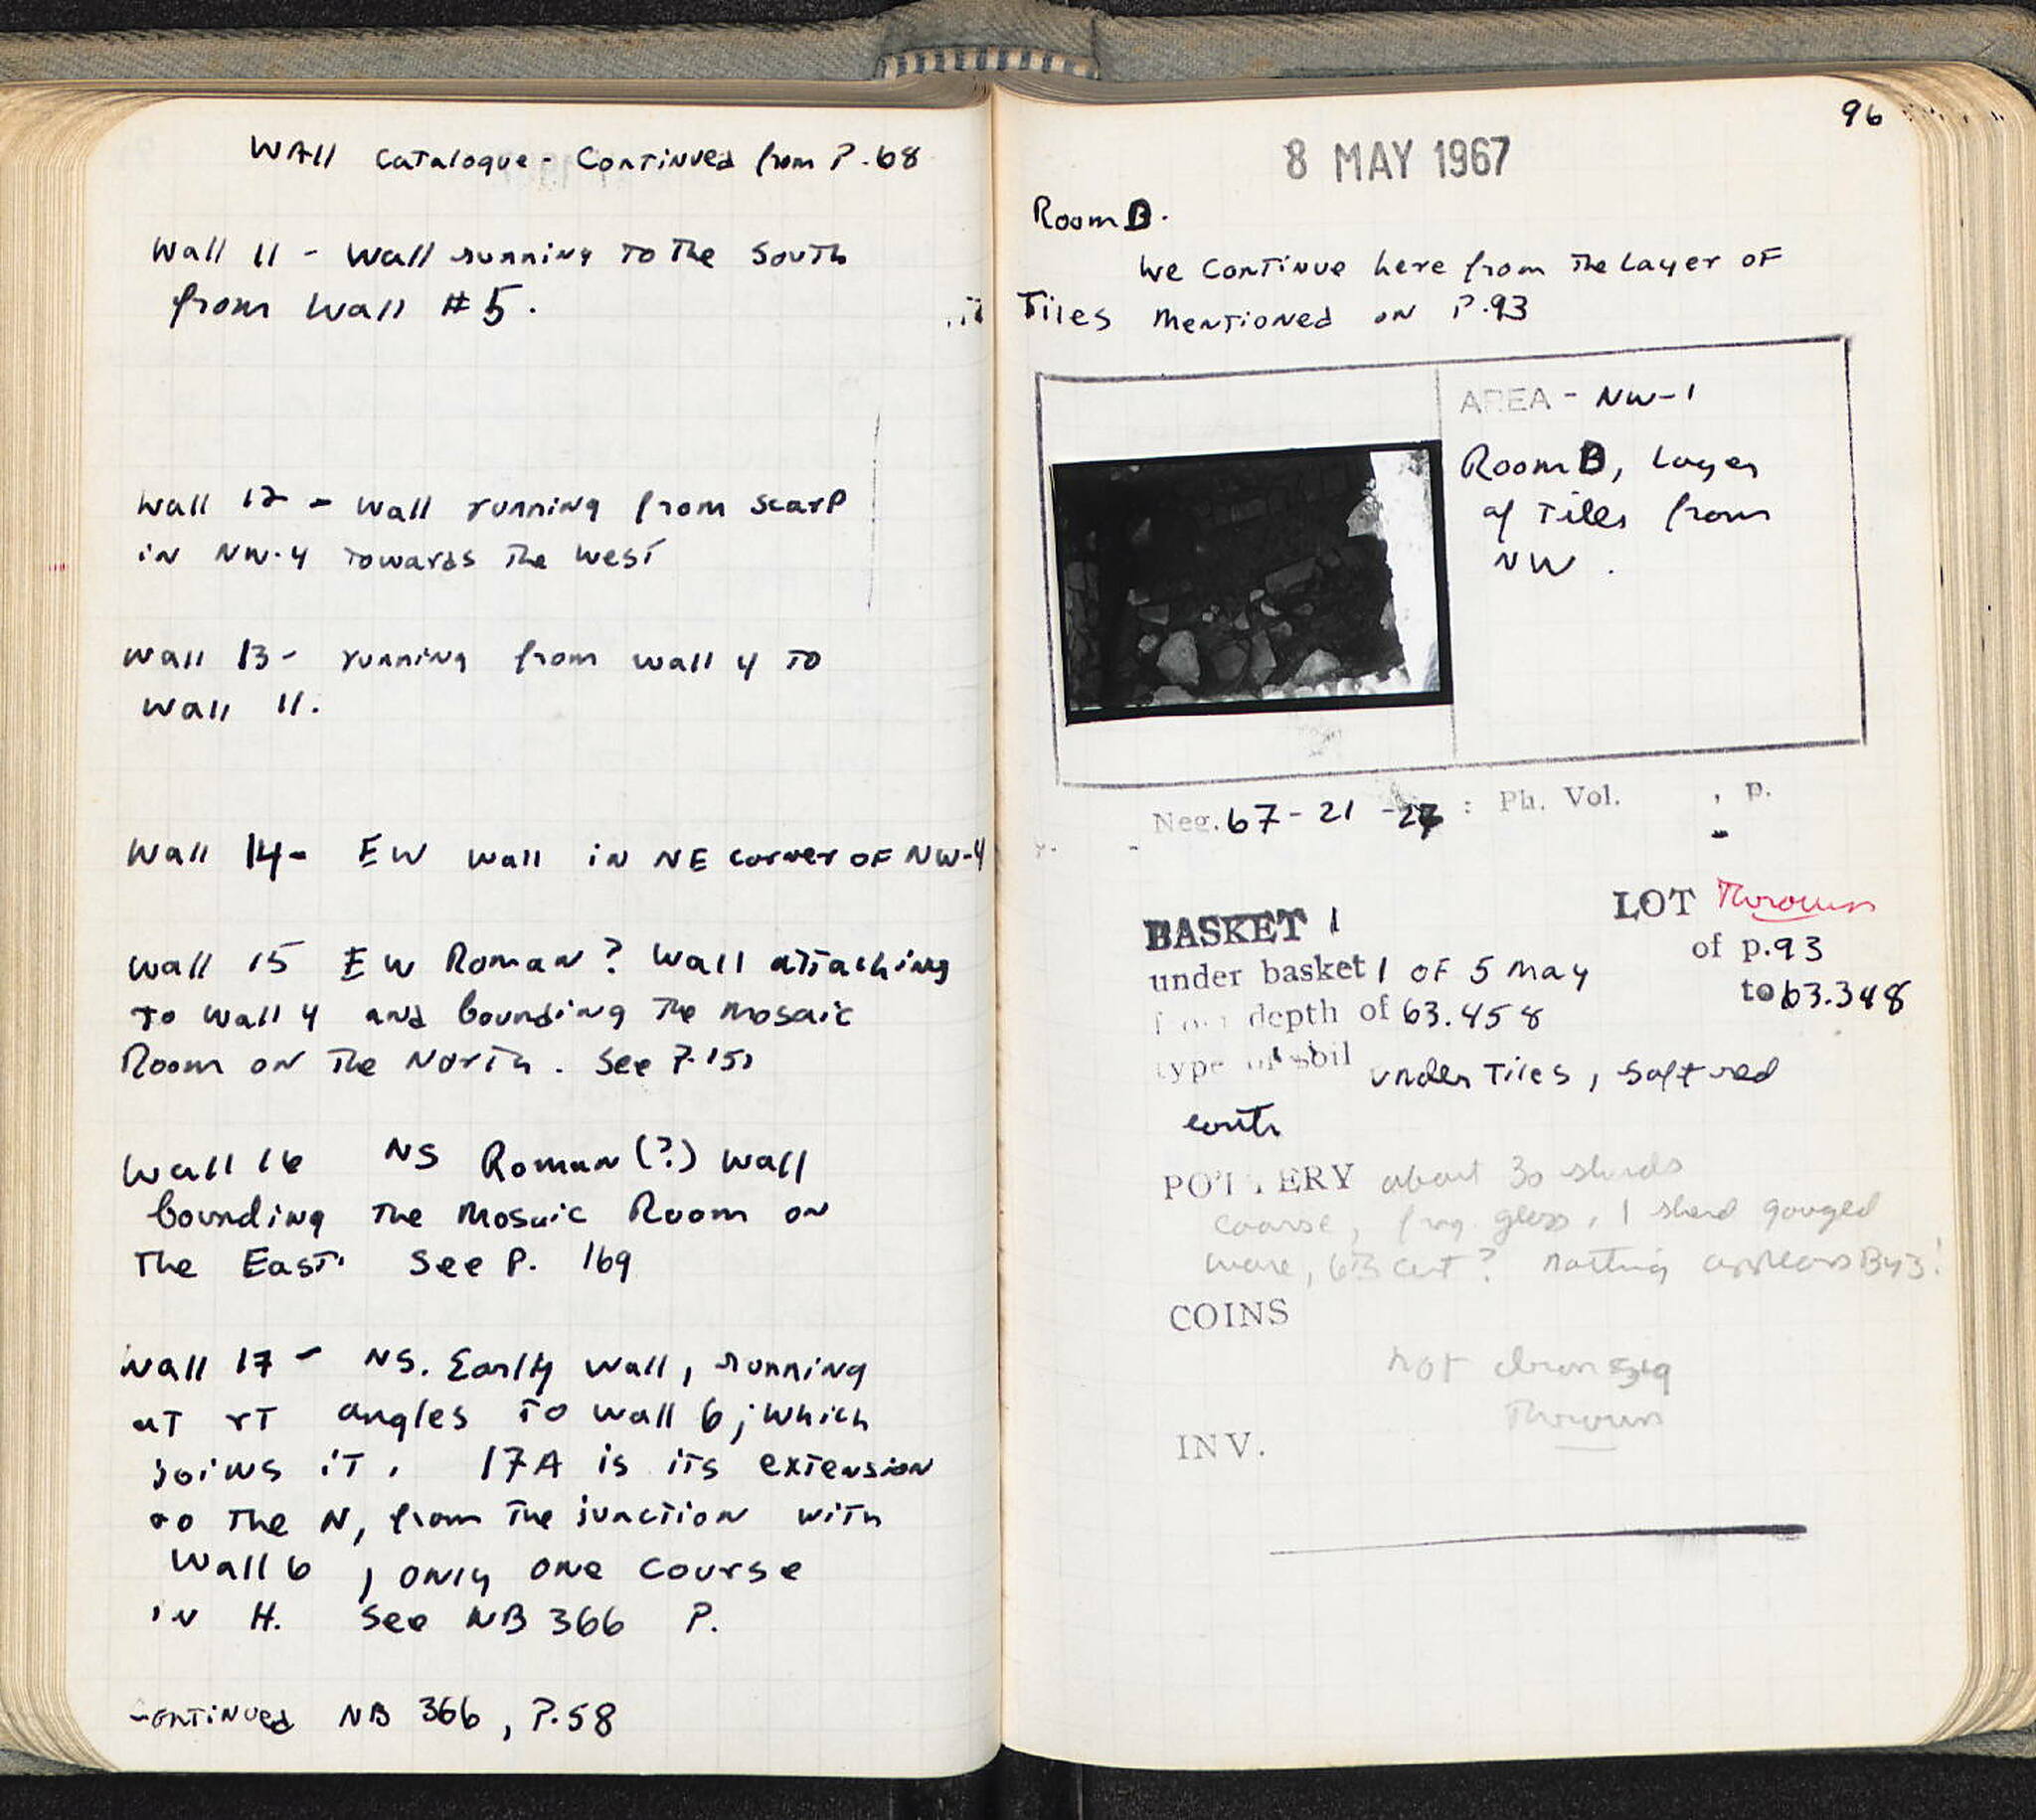 Wall Catalogue - Continued from P. 68
Wall 11 - Wall running to the South
from Wall #5.
Wall 12 - Wall running from scarp
in NW-4 towards the West
Wall 13 - running from wall 4 to
Wall 11.
Wall 14 - EW wall in NE corner of NW-4
Wall 15 EW Roman? Wall attaching
to wall 4 and bounding the mosaic
Room on the North. See P. 151
Wall 16 NS Roman (?) wall
bounding the Mosaic Room on
the East. See P. 169
Wall 17 - NS. Early wall, running
at rt angles to wall 6; which
joins it. 17A is its extension
to the N, from the junction with
Wall 6, only one course
in H. See NB 366 P.
Continued NB 366, P. 58
96
8 MAY 1967
Room B.
We continue here from the Layer of
Tiles mentioned on P. 93
AREA - NW-1
Room B, Layer
of Tiles from
NW.
Neg. 67-21-27 : Ph. Vol. , p.
BASKET 1
LOT Thrown
under basket 1 of 5 May
of p. 93
from depth of 63.458
to 63.348
type of soil under Tiles, soft red
earth
POTTERY about 30 sherds
coarse, frag. glass, 1 sherd gouged
ware, 6th cent? nothing appears Byz!
COINS
not
Thrown
INV.